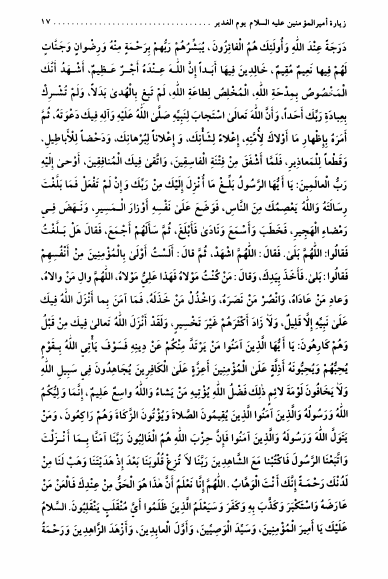 زيارة أميرالمؤمنين عليه السلام يوم الغدير ................................ ١٧
دَرَجَةً عِنْدَ اللهِ وَأُولَئِكَ هُمُ الْفَائِزُونَ، يُبَشِّرُهُمْ رَبُّهُمْ بِرَحْمَةٍ مِنْهُ وَرِضْوَانٍ وَجَنَّاتٍ
لَهُمْ فِيهَا نَعِيمٌ مُقِيمٌ، خَالِدِينَ فِيهَا أَبَداً إِنَّ اللهَ عِنْدَهُ أَجْرٌ عَظِيمٌ، أَشْهَدُ أَنَّكَ
الْمَخْصُوصُ بِمِدْحَةِ اللهِ، الْمُخْلِصُ لِطَاعَةِ اللهِ، لَمْ تَبْغِ بِالْهُدَى بَدَلاً، وَلَمْ تُشْرِكْ
بِعِبَادَةِ رَبِّكَ أَحَداً، وَأَنَّ اللهَ تَعَالَىٰ اسْتَجَابَ لِنَبِيِّهِ صَلَّى اللهُ عَلَيْهِ وَآلِهِ فِيكَ دَعْوَتَهُ، ثُمَّ
أَمَرَهُ بِإِظْهَارِ مَا أَوْلاَكَ لأُمَّتِهِ، إِعْلاَءً لِشَأْنِكَ، وَإِعْلاَناً لِبُرْهَانِكَ، وَدَحْضاً لِلأَبَاطِيلِ،
وَقَطْعاً لِلْمَعَاذِيرِ، فَلَمَّا أَشْفَقَ مِنْ فِتْنَةِ الْفَاسِقِينَ، وَاتَّقَىٰ فِيكَ الْمُنَافِقِينَ، أَوْحَىٰ إِلَيْهِ
رَبُّ الْعَالَمِينَ: يَا أَيُّهَا الرَّسُولُ بَلِّغْ مَا أُنْزِلَ إِلَيْكَ مِنْ رَبِّكَ وَإِنْ لَمْ تَفْعَلْ فَمَا بَلَّغْتَ
رِسَالَتَهُ وَاللهُ يَعْصِمُكَ مِنَ النَّاسِ، فَوَضَعَ عَلَىٰ نَفْسِهِ أَوْزَارَ الْمَسِيرِ، وَنَهَضَ فِي
رَمْضَاءِ الْهَجِيرِ، فَخَطَبَ وَأَسْمَعَ وَنَادَىٰ فَأَبْلَغَ، ثُمَّ سَأَلَهُمْ أَجْمَعَ، فَقَالَ هَلْ بَلَّغْتُ
فَقَالُوا: اللَّهُمَّ بَلَىٰ. فَقَالَ: اللَّهُمَّ اشْهَدْ، ثُمَّ قَالَ: أَلَسْتُ أَوْلَىٰ بِالْمُؤْمِنِينَ مِنْ أَنْفُسِهِمْ
فَقَالُوا: بَلَىٰ. فَأَخَذَ بِيَدِكَ، وَقَالَ: مَنْ كُنْتُ مَوْلاَهُ فَهَذَا عَلِيٌّ مَوْلاَهُ، اللَّهُمَّ وَالِ مَنْ وَالاَهُ،
وَعَادِ مَنْ عَادَاهُ، وَانْصُرْ مَنْ نَصَرَهُ، وَاخْذُلْ مَنْ خَذَلَهُ، فَمَا آمَنَ بِمَا أَنْزَلَ اللهُ فِيكَ
عَلَىٰ نَبِيِّهِ إِلاَّ قَلِيلٌ، وَلاَ زَادَ أَكْثَرَهُمْ غَيْرَ تَخْسِيرٍ، وَلَقَدْ أَنْزَلَ اللهُ تَعَالَىٰ فِيكَ مِنْ قَبْلُ
وَهُمْ كَارِهُونَ: يَا أَيُّهَا الَّذِينَ آمَنُوا مَنْ يَرْتَدَّ مِنْكُمْ عَنْ دِينِهِ فَسَوْفَ يَأْتِي اللهُ بِقَوْمٍ
يُحِبُّهُمْ وَيُحِبُّونَهُ أَذِلَّةٍ عَلَى الْمُؤْمِنِينَ أَعِزَّةٍ عَلَى الْكَافِرِينَ يُجَاهِدُونَ فِي سَبِيلِ اللهِ
وَلاَ يَخَافُونَ لَوْمَةَ لاَئِمٍ ذَلِكَ فَضْلُ اللهِ يُؤْتِيهِ مَنْ يَشَاءُ وَاللهُ وَاسِعٌ عَلِيمٌ، إِنَّمَا وَلِيُّكُمُ
اللهُ وَرَسُولُهُ وَالَّذِينَ آمَنُوا الَّذِينَ يُقِيمُونَ الصَّلاَةَ وَيُؤْتُونَ الزَّكَاةَ وَهُمْ رَاكِعُونَ، وَمَنْ
يَتَوَلَّ اللهَ وَرَسُولَهُ وَالَّذِينَ آمَنُوا فَإِنَّ حِزْبَ اللهِ هُمُ الْغَالِبُونَ رَبَّنَا آمَنَّا بِمَا أَنْزَلْتَ
وَاتَّبَعْنَا الرَّسُولَ فَاكْتُبْنَا مَعَ الشَّاهِدِينَ رَبَّنَا لاَ تُزِغْ قُلُوبَنَا بَعْدَ إِذْ هَدَيْتَنَا وَهَبْ لَنَا مِنْ
لَدُنْكَ رَحْمَةً إِنَّكَ أَنْتَ الْوَهَّابُ. اللَّهُمَّ إِنَّا نَعْلَمُ أَنَّ هَذَا هُوَ الْحَقُّ مِنْ عِنْدِكَ فَالْعَنْ مَنْ
عَارَضَهُ وَاسْتَكْبَرَ وَكَذَّبَ بِهِ وَكَفَرَ وَسَيَعْلَمُ الَّذِينَ ظَلَمُوا أَيَّ مُنْقَلَبٍ يَنْقَلِبُونَ. السَّلاَمُ
عَلَيْكَ يَا أَمِيرَ الْمُؤْمِنِينَ، وَسَيِّدَ الْوَصِيِّينَ، وَأَوَّلَ الْعَابِدِينَ، وَأَزْهَدَ الزَّاهِدِينَ وَرَحْمَةُ